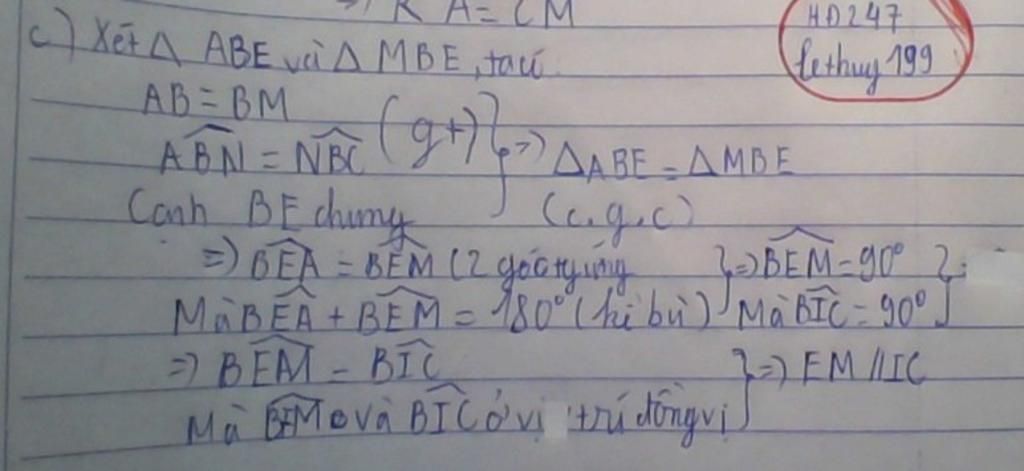 => KA = CM
HD247
lethuy199
c) Xét Δ ABE và Δ MBE, ta có
AB = BM
ABN = NBC (gt) } => ΔABE = ΔMBE
Cạnh BE chung (c.g.c)
=> BEA = BEM (2 góc tứ ứng } => BEM = 90° }
Mà BEA + BEM = 180° (kề bù) Mà BIC = 90°
=> BEM = BIC } => EM // IC
Mà BEM và BIC ở vị trí đồng vị